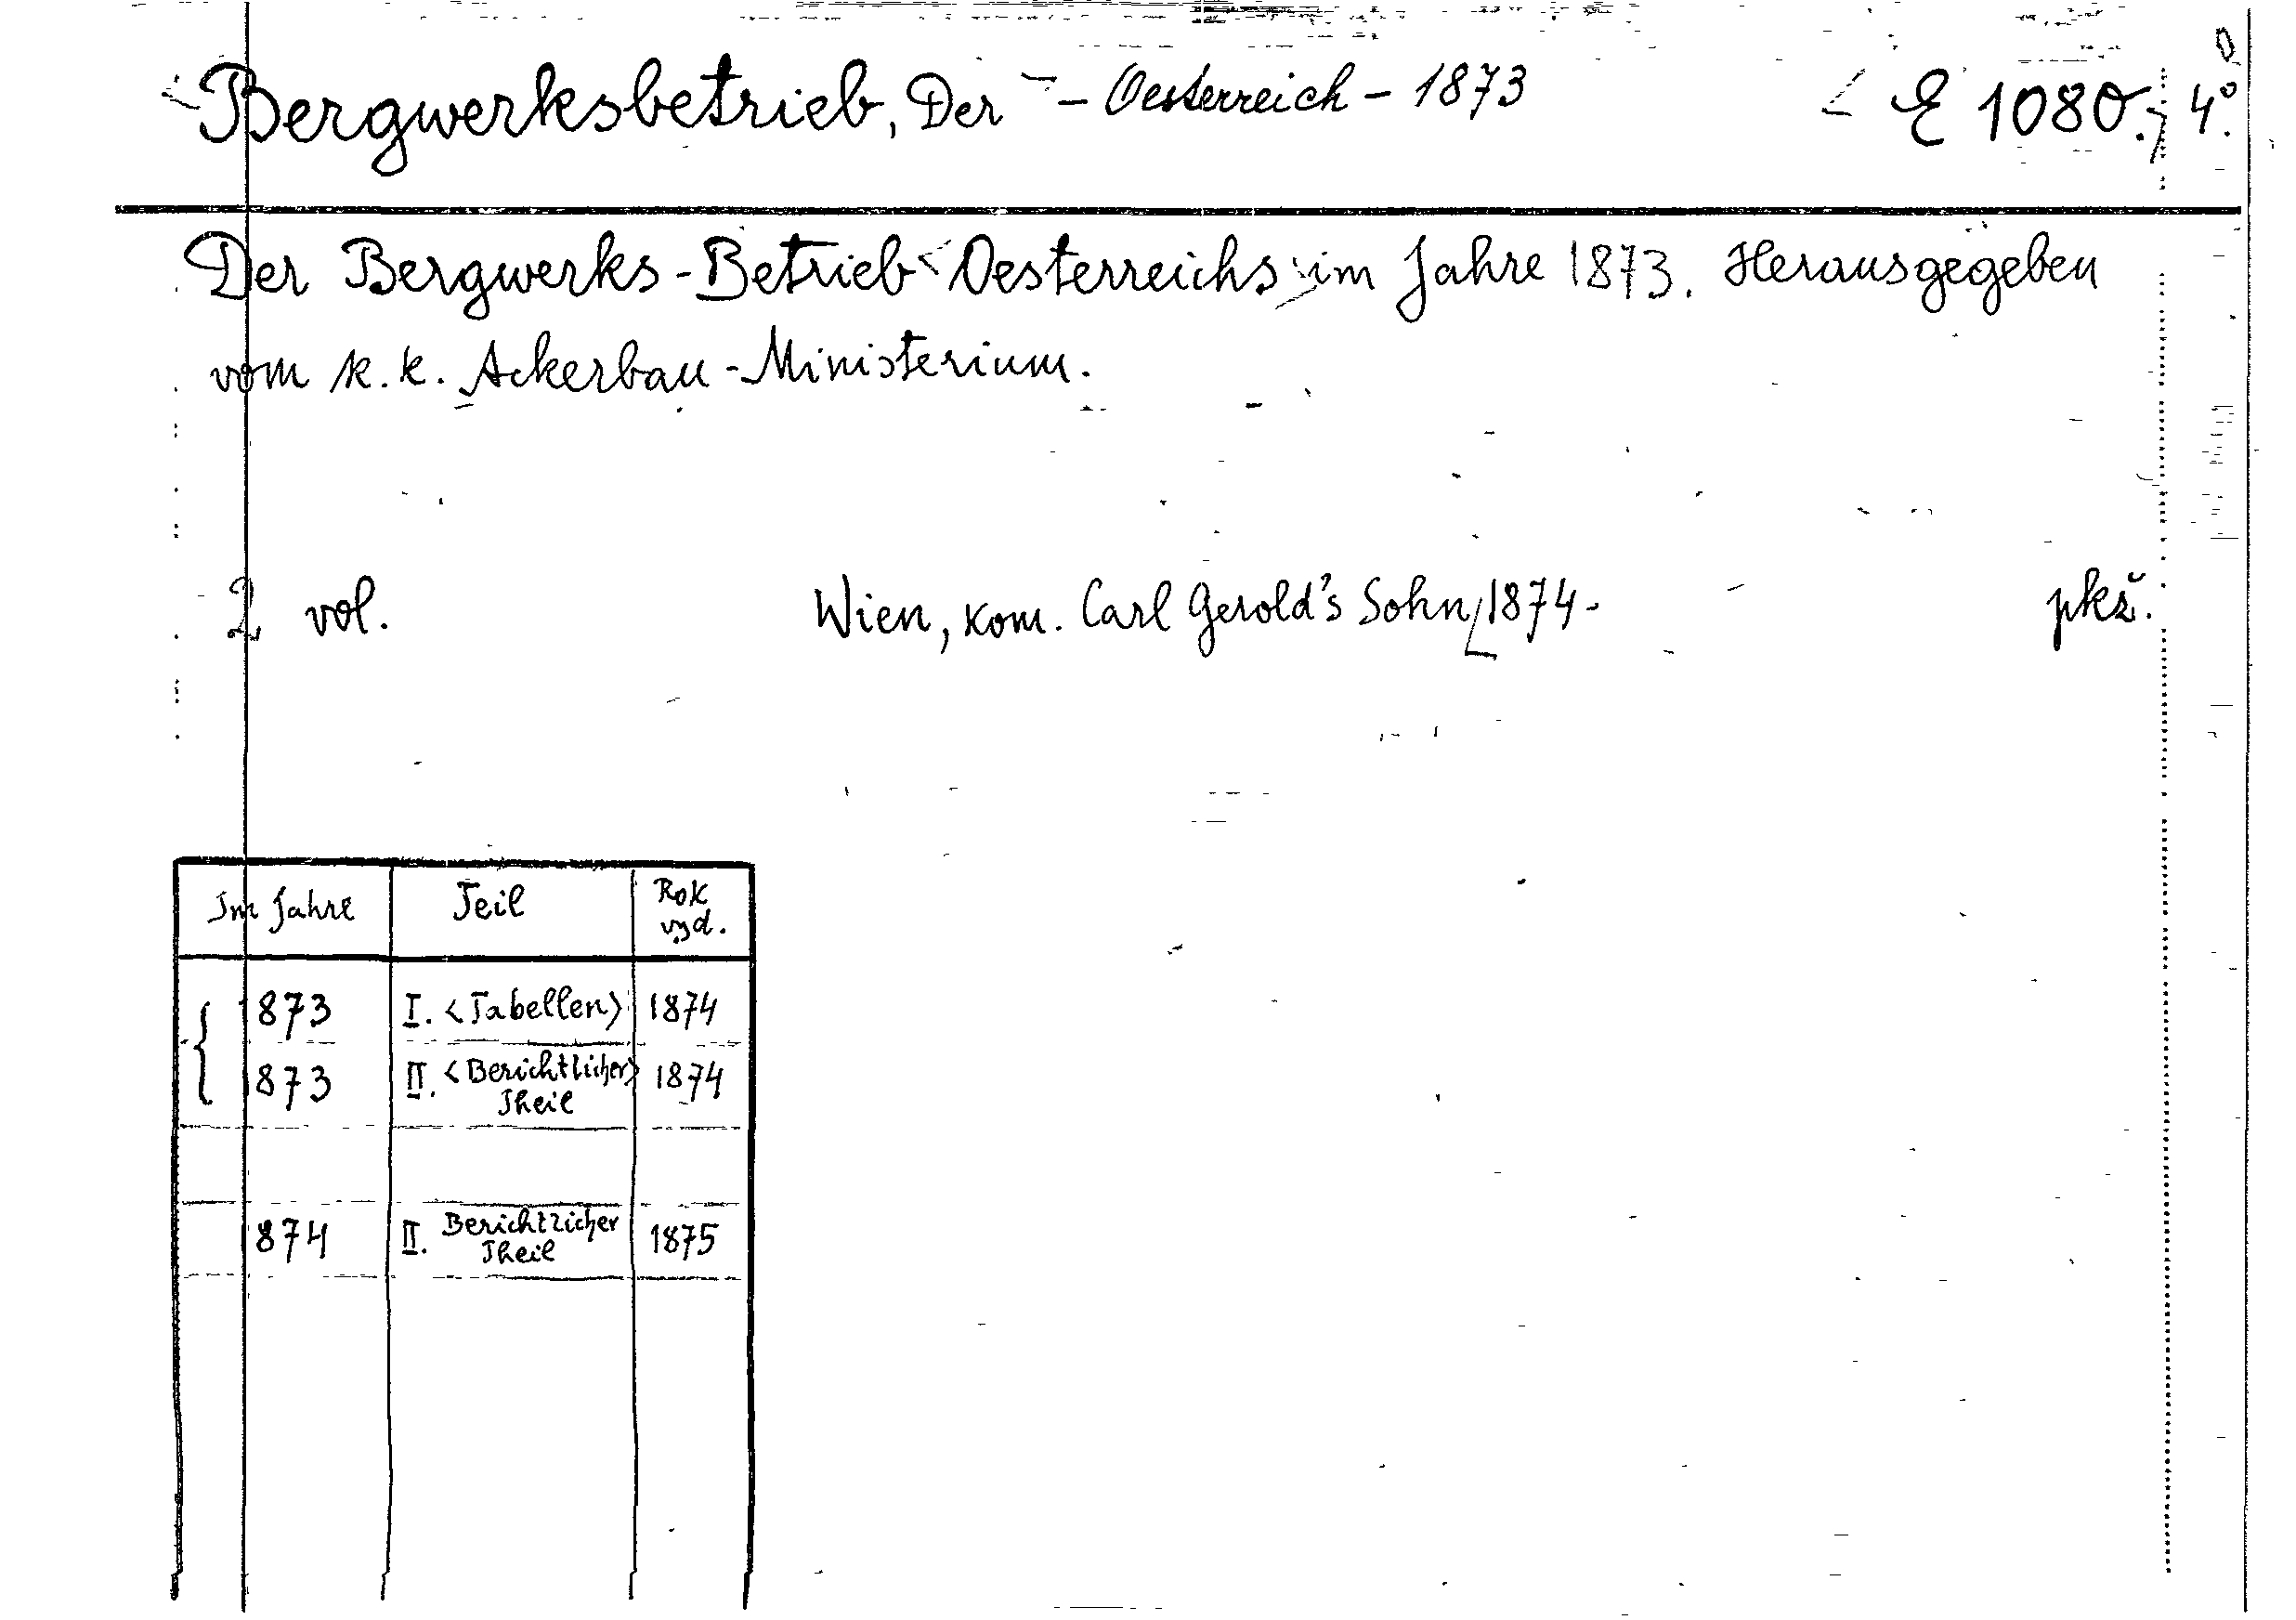 Bergwerksbetrieb, Der – Oesterreich – 1873 E 1080., 4°.
Der Bergwerks-Betrieb Oesterreichs im Jahre 1873. Herausgegeben
vom k.k. Ackerbau-Ministerium.
2 vol. Wien, kom. Carl Gerold's Sohn, 1874- pkš.
Im Jahre Teil Rok vyd.
1873 I. <Tabellen> 1874
1873 II. <Berichtlicher> Theil 1874
1874 II. Berichtlicher Theil 1875